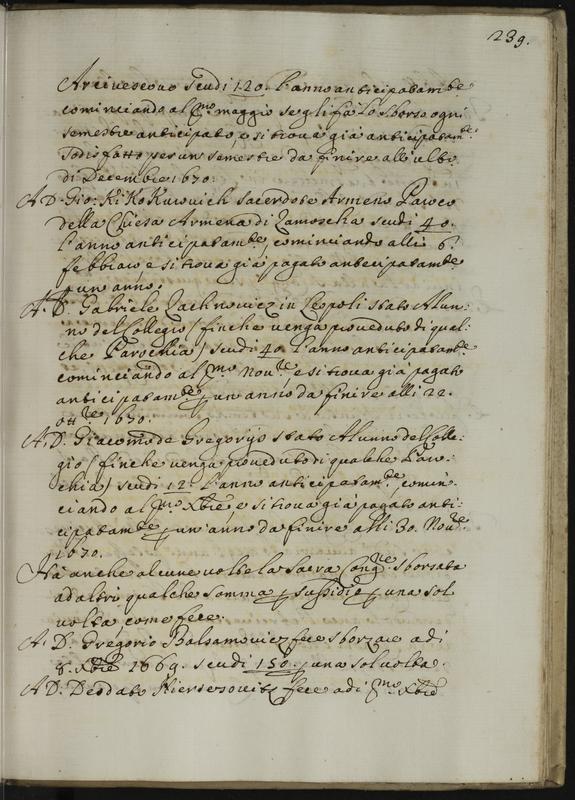 239.
Arciuescouo scudi 120. l'anno anticipatam.te
cominciando al p.mo maggio se gli fà lo sborso ogni
semestre anticipato, e si troua già anticipatam.te
sodisfatto per un semestre da finire alli ult.o
di Decembre 1670.
A D. Gio: KiKoKuwich sacerdote Armeno Paroco
della Chiesa Armena di Zamoscha scudi 40.
l'anno anticipatam.te cominciando alli 6.
febbraio e si troua già pagato antecipatam.te
p un anno.
A. D. Gabriele Zachnowicz in Leopoli stato Alun-
no del Collegio (finche venga proueduto di qual-
che Parochia) scudi 40. l'anno anticipatam.te
cominciando al p.mo Nou.re e si troua già pagato
anticipatam.te p un anno da finire alli 22.
ott.re 1670.
A. D. Giacomo de Gregorijs stato Alunno del Colle-
gio (finche venga proueduto di qualche Paro-
chia) scudi 12. l'anno anticipatam.te comin-
ciando al p.mo Xbre, e si troua già pagato anti-
cipatam.te p un anno da finire alli 30. Nou.re
1670.
Hà anche alcune uolte la Sacra Cong.ne sborsata
ad altri qualche somma p sussidio p una sol
uolta, come fece.
A. D. Gregorio Balsamowicz fece sborzare adi
8. Xbre 1669. scudi 150. p una sol uolta.
A D. Deodato Niersesowitz fece adi p.mo Xbre